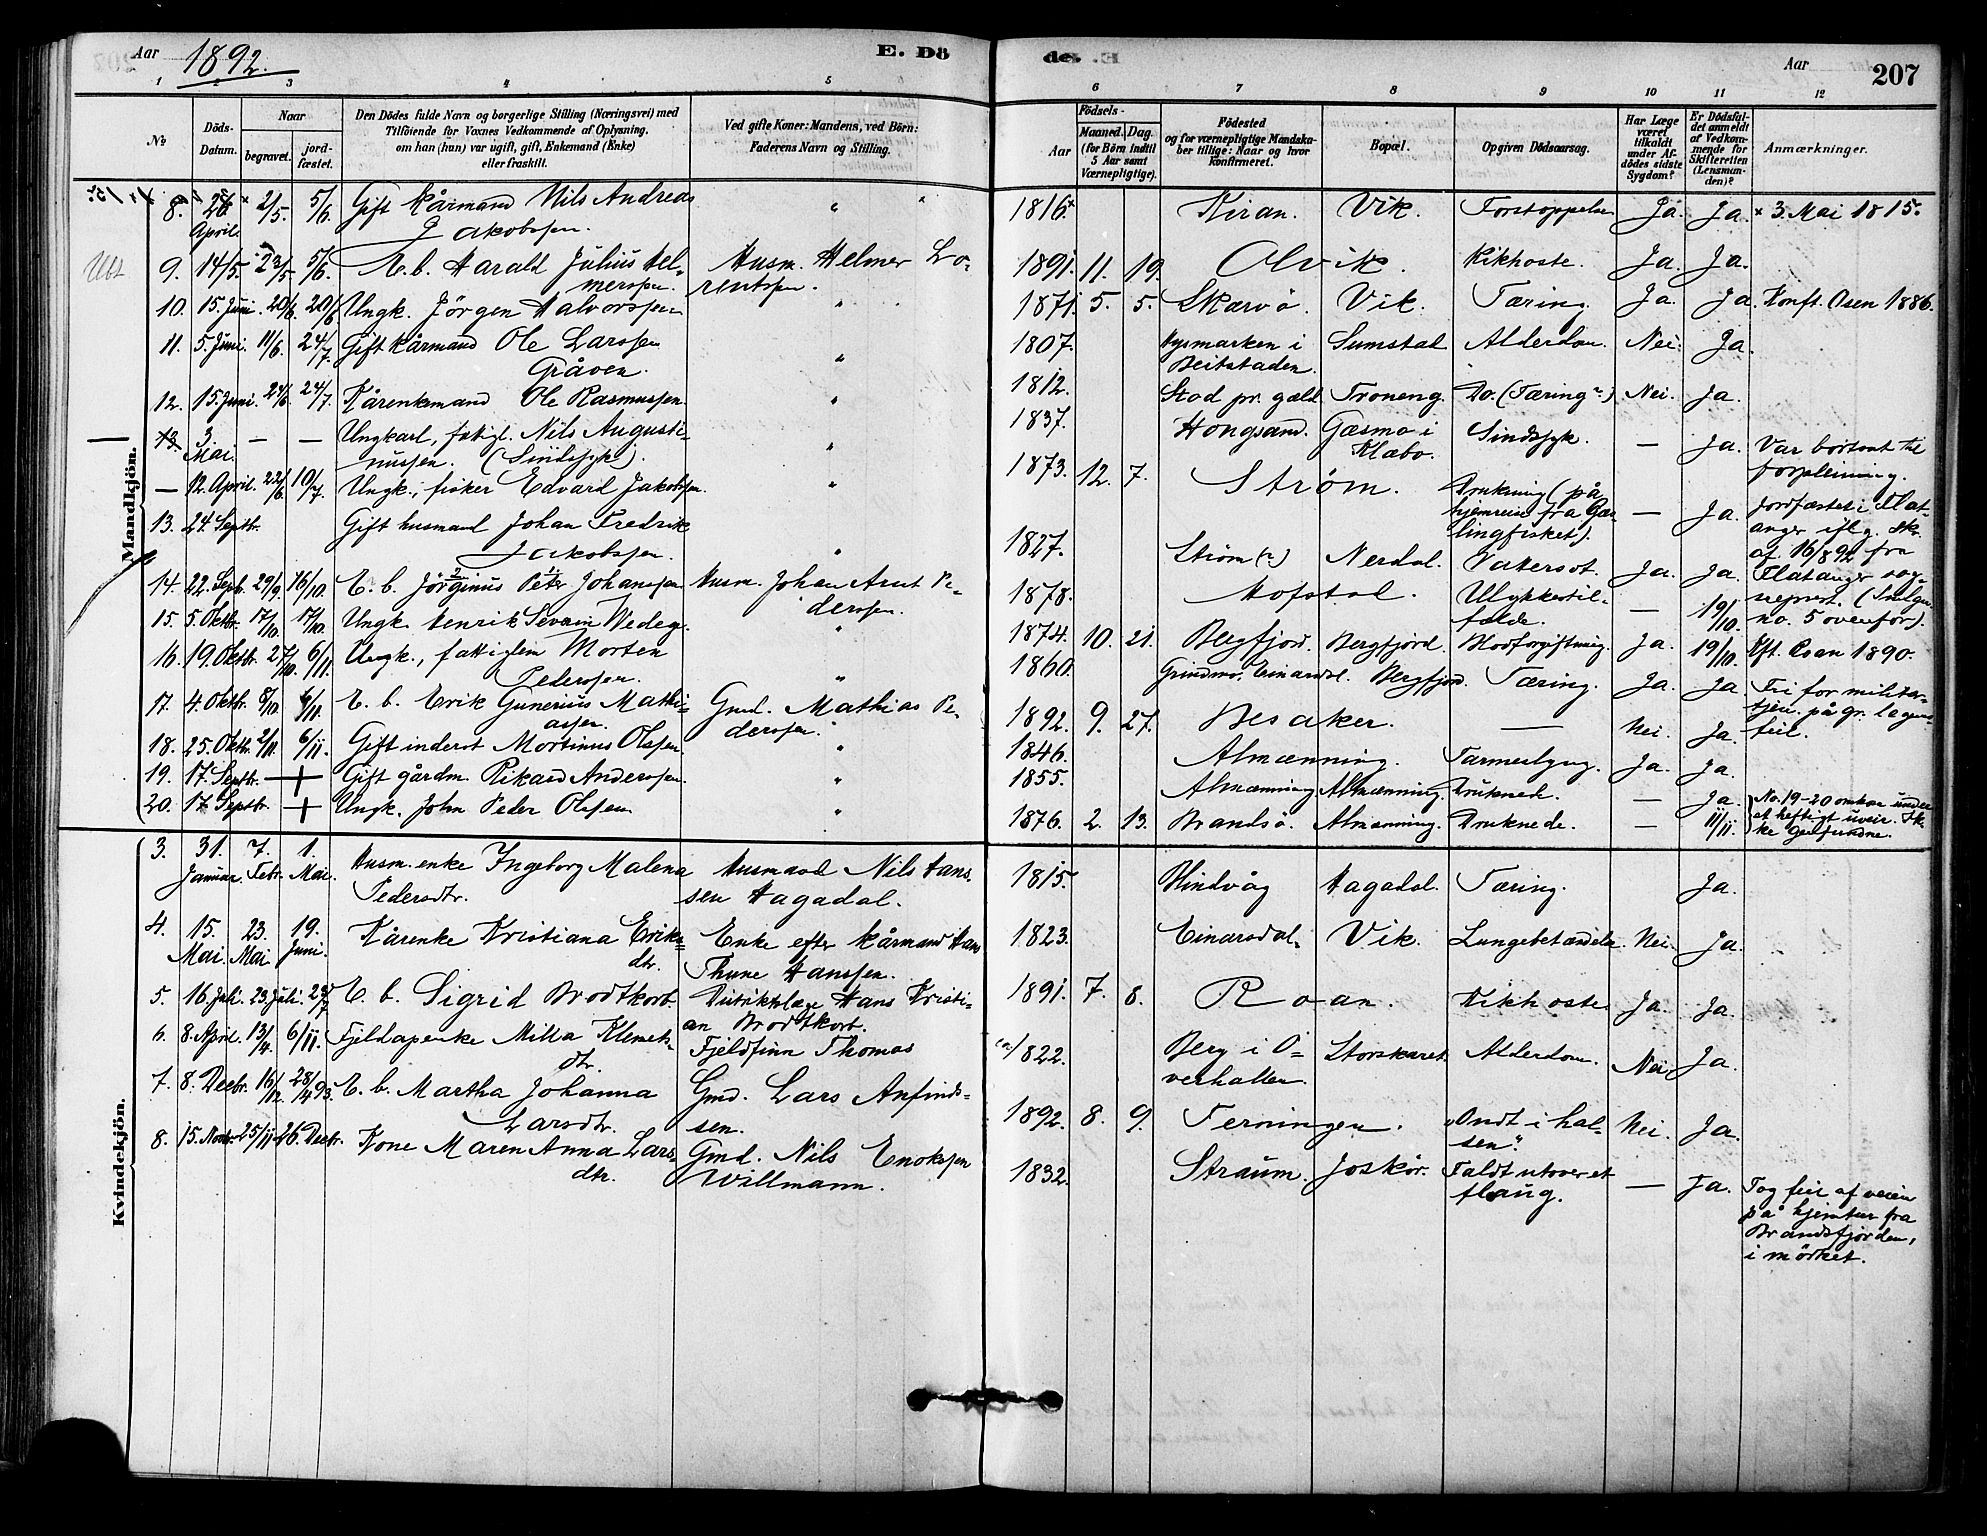 Aar 1892.
E. Dö
de.
Aar
207
1 2 3 4 5
6 7 8 9 10 11 12
№
Döds-Datum.
Naar
begravet.
jord-fæstet.
Den Dödes fulde Navn og borgerlige Stilling (Næringsvei) med
Tilföiende for Voxnes Vedkommende af Oplysning,
om han (hun) var ugift, gift, Enkemand (Enke)
eller fraskilt.
Ved gifte Koner: Mandens, ved Börn:
Faderens Navn og Stilling.
Födsels-
Aar
Maaned. Dag.
(for Börn indtil
5 Aar samt
Værnepligtige).
Födested
og for værnepligtige Mandska-
ber tillige: Naar og hvor
konfirmeret.
Bopæl.
Opgiven Dödsaarsag.
Har Læge
været
tilkaldt
under Af-
dödes sidste
Sygdom?
Er Dödsfal-
det anmeldt
af Vedkom-
mende for
Skifteretten
(Lensman-
den)?
Anmærkninger.
Mandkjön.
8. 26 April. 2/5. 5/6. Gift kårmand Nils Andreas
Jakobssen. " 1816.× Kiran. Vik. Forstoppelse Ja. Ja. × 3. Mai 1815.
9. 14/5. 23/5 5/6. E. b. Harald Julius Hel-
merssen. Husm. Helmer Lo-
rentssen. 1891. 11. 19. Olvik. Kikhoste. Ja. Ja.
10. 15. Juni. 20/6. 20/6 Ungk. Jörgen Halvorssen " 1871. 5. 5. Skjærvö. Vik. Tæring. Ja. Ja. Konft. Osen 1886.
11. 5. Juni. 11/6. 24/7. Gift kårmand Ole Larssen
Gråven. " 1807. i
Beitstaden. Sumstad Alderdom. Nei. Ja.
12. 15. Juni. 24/6. 24/7. Kårenkemand Ole Rasmussen. " 1812. Stod pr. gæld. Troneng. Do. (Tæring?) Nei. Ja.
13. 3. Mai. — — Ungkarl, fattigl. Nils Augusti-
nussen. (Sindssyk). " 1837. Hongsand. Gæsmo i
Klæbo. Sindssyk. — Ja. Var bortsat til
forpleining.
— 12. April. 22/6. 10/7. Ungk., fisker Edvard Jakobssen. " 1873. 12. 7. Ström. Drukning (på
hjemreise fra
lingfisket). — Ja. Jordfæstet i Flat-
anger iflg. skr.
af 16/8 92 fra
Flatanger sog-
nepræst.
no. 5 ovenfor).
13. 24. Septbr. Gift husmand Johan Fredrik
Jakobssen. " 1827. Ström (?) Nerdal. Vatersot. Ja. Ja.
14. 22. Sept. 29/9. 16/10. E. b. Jörginus Petr Johanssen Husm. Johan Arnt Pe-
derssen. 1878. Hofstad. Ulykkestil-
fælde. — 19/10.
15. 5. Oktbr. 17/10. 17/10. Ungk. Henrik Wedege " 1874. 10. 21. Bergfjord. Bergfjord. Blodforgiftning. Ja. 19/10. Kft. Osen 1890.
16. 19. Oktbr. 27/10. 6/11. Ungk., fattiglem Morten
Pederssen. " 1860. Grindmo, Einarsdal. Bergfjord. Tæring. Ja. Ja. Fri for militær-
tjen. på gr. legems-
feil.
17. 4. Oktbr. 8/10. 6/11. E. b. Erik Gunerius Mathi-
assen. Gmd. Mathias Pe-
derssen. 1892. 9. 27. Besaker. — Nei. Ja.
18. 25. Oktbr. 2/11. 6/11. Gift inderst Mortinus Olssen " 1846. Almænning. Tarmeslyng. Ja. Ja.
19. 17. Septbr. — Gift gårdm. Rikard Anderssen. " 1855. Almænning Almænning. Druknede. — Ja.
20. 17. Septbr. Ungk. John Peder Olssen " 1876. 2. 13. Brandsö. Almænning. Druknede. — 11/11. No. 19-20 omkom under
et heftigt uveir. Ik-
ke gjenfundne.
Kvindekjön.
3. 31. Januar. 7. Febr. 1. Mai. Husm. enke Ingeborg Malena
Pedersdtr. Husmand Nils Hans-
sen Hagadal. 1815. Hindvåg Hagadal. Tæring. Ja.
4. 15. Mai. 23. Mai 19. Juni. Kårenke Kristiana Eriks-
dtr. Enke efter kårmand Hans
Thune Hanssen. 1823. Einarsdal. Vik. Lungebetændelse Nei. Ja.
5. 16. Juli. 23. Juli. 23/7 E. b. Sigrid Brodtkorb Distriktslæge Hans Kristi-
an Brodtkorb. 1891. 7. 8. Roan. Kikhoste Ja. Ja.
6. 8. April. 13/4. 6/11. Fjeldlapenke Milla Klemets-
dtr. Fjeldfinn Thomas ca. 1822. Berg i O-
verhallen. Storskaret. Alderdom. Nei Ja.
7. 8. Decbr. 16/12. 28/4 93. E. b. Martha Johanna
Larsdtr. Gmd. Lars Anfinds-
sen. 1892. 8. 9. Terningen. "Ondt i hal-
sen". Nei. Ja.
8. 15. Novbr. 25/11 26. Decbr. Kone Maren Anna Lars-
dtr. Gmd. Nils Enokssen
Willmann. 1832. Straum. Joskör. Faldt utover et
flaug. — Ja. Tog feil af veien
på hjemtur fra
Brandsfjorden,
i mörket.